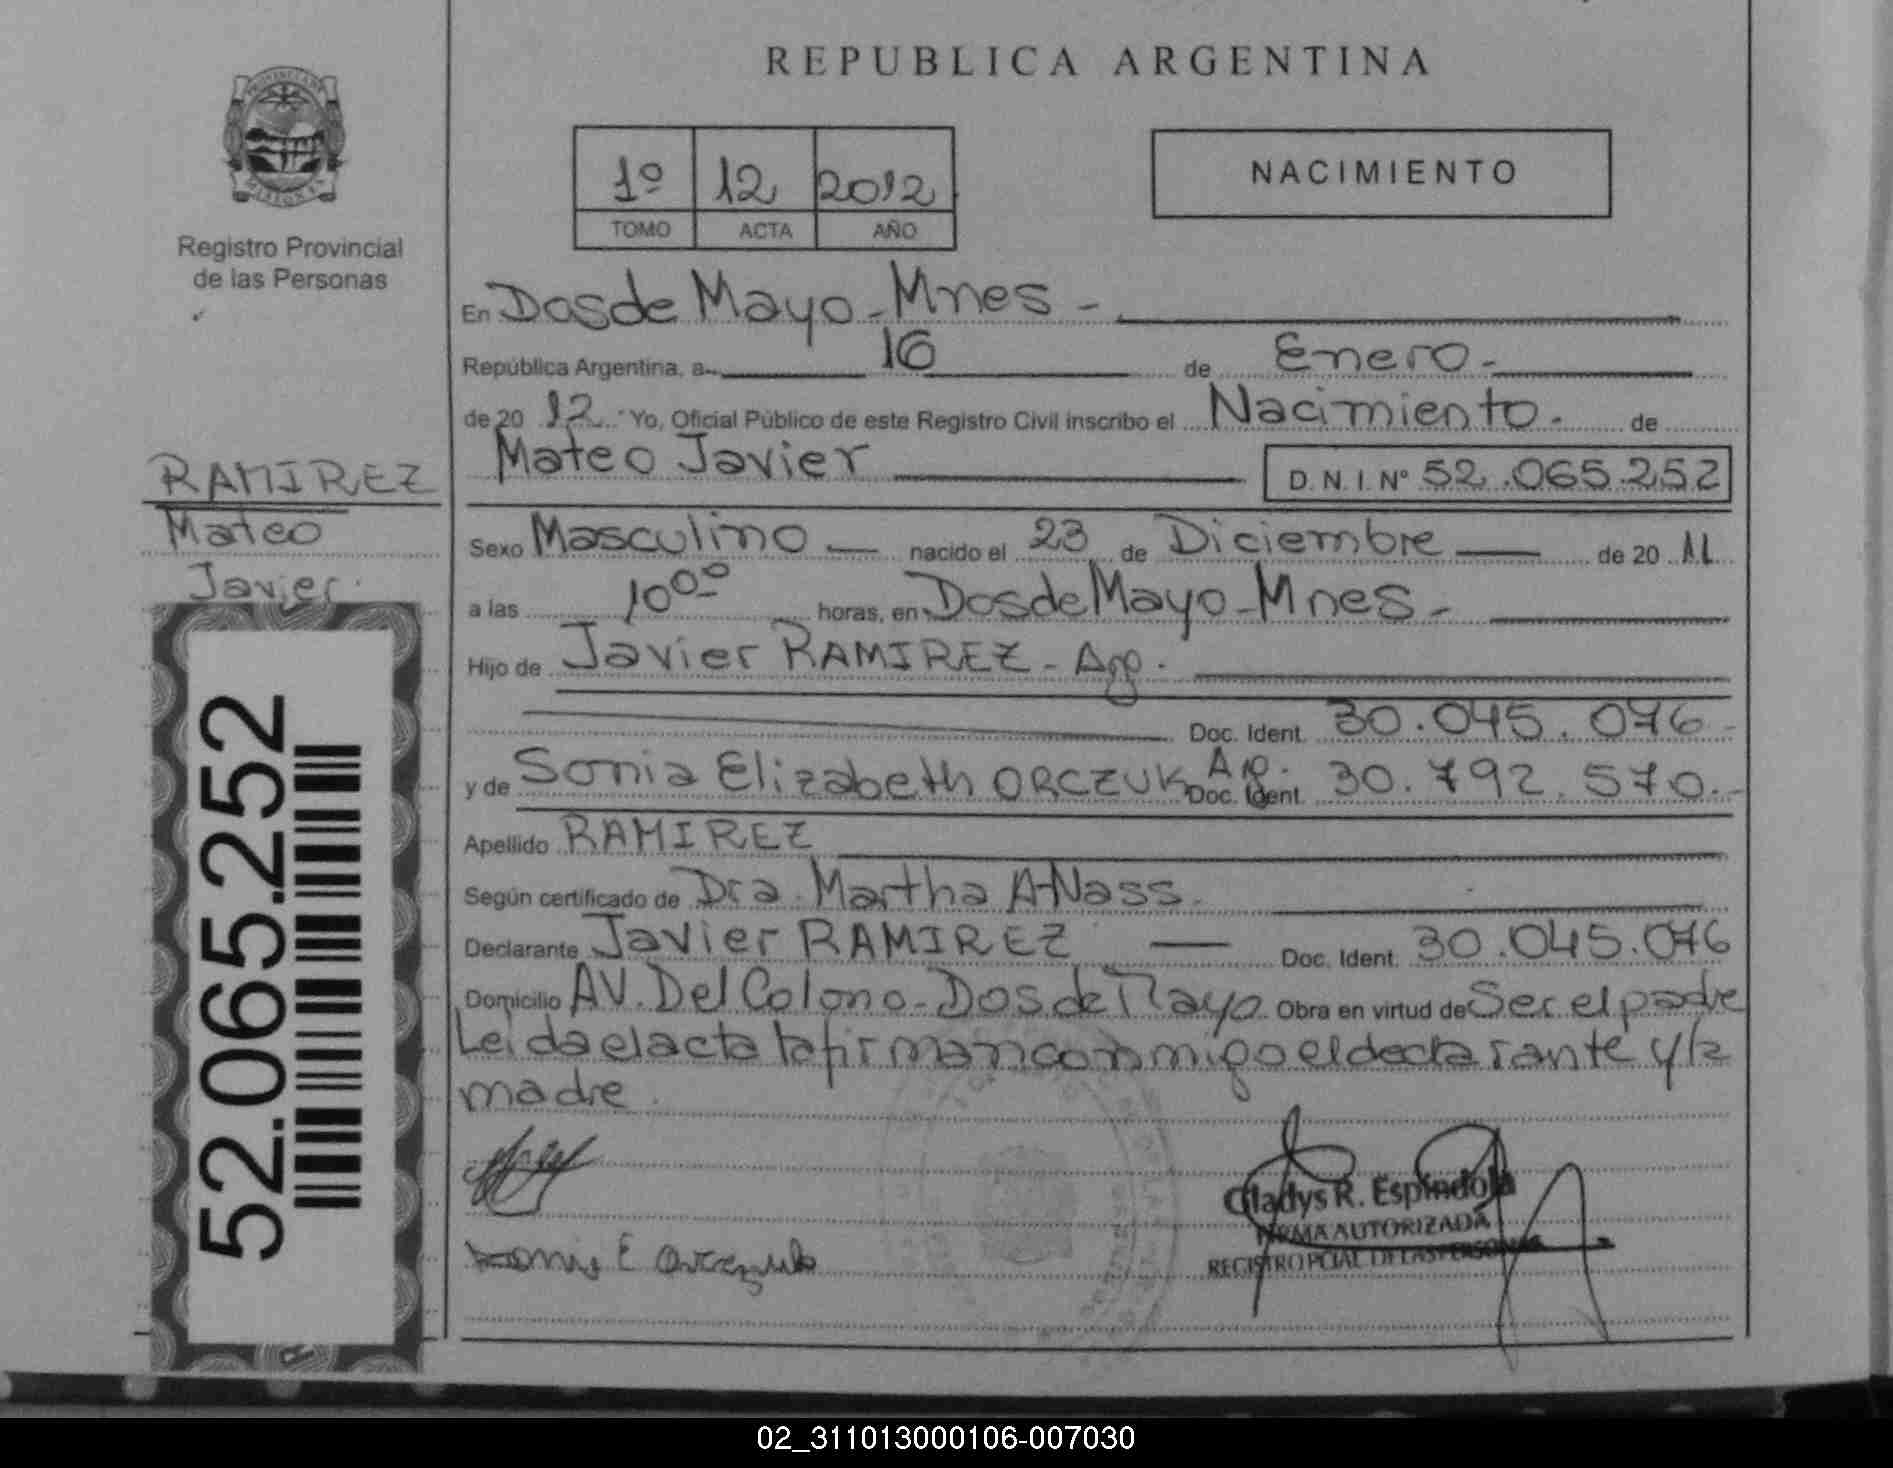 REPUBLICA ARGENTINA
PROVINCIA DE
MISIONES
Registro Provincial
de las Personas
1º 12 2012
TOMO ACTA AÑO
NACIMIENTO
En Dos de Mayo - Mnes -
República Argentina, a 16 de Enero.-
de 2012. Yo, Oficial Público de este Registro Civil inscribo el Nacimiento. de
Mateo Javier D.N.I. Nº 52.065.252
RAMIREZ
Mateo
Javier.
Sexo Masculino nacido el 23 de Diciembre de 2011
a las 10⁰⁰ horas, en Dos de Mayo - Mnes -
Hijo de Javier RAMIREZ - Arg.
Doc. Ident. 30.045.076 -
y de Sonia Elizabeth ORCZUK Arg. Doc. Ident. 30.792.570.-
Apellido RAMIREZ
Según certificado de Dra. Martha A. Nass.
Declarante Javier RAMIREZ Doc. Ident. 30.045.076
Domicilio AV. Del Colono - Dos de Mayo. Obra en virtud de Ser el padre
Leida el acta la firman conmigo el declarante y la
madre.
52.065.252
Gladys R. Espindola
FIRMA AUTORIZADA
REGISTRO PCIAL. DE LAS PERSONAS
Sonia E Orczuk
02_311013000106-007030